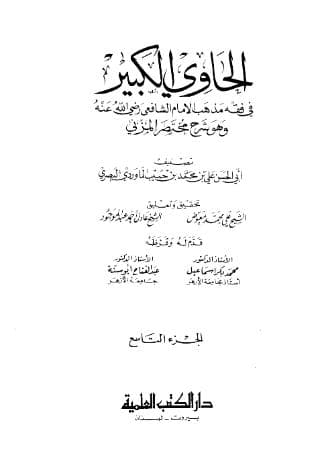 الحاوي الكبير
في فقه مذهب الإمام الشافعي رضي الله عنه
وهو شرح مختصر المزني
تصنيف
أبي الحسن علي بن محمد بن حبيب الماوردي البصري
تحقيق وتعليق
الشيخ علي محمد معوض الشيخ عادل أحمد عبد الموجود
قدم له وقرظه
الأستاذ الدكتور الأستاذ الدكتور
محمد بكر إسماعيل عبد الفتاح أبو سنة
أستاذ بجامعة الأزهر جامعة الأزهر
الجزء التاسع
دار الكتب العلمية
بيروت - لبنان